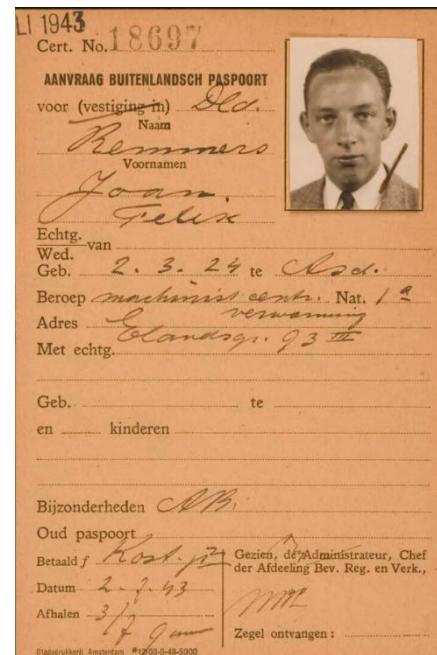 LI 1943
Cert. No. 18697
AANVRAAG BUITENLANDSCH PASPOORT
voor (vestiging in) Dld.
Naam
Remmers
Voornamen
Joan.
Felix
Echtg.
Wed. van
Geb. 2.3.24 te Asd.
Beroep machinist centr. Nat. 1a
verwarming
Adres Elandsgr. 93 III
Met echtg.
Geb. te
en kinderen
Bijzonderheden AB.
Oud paspoort
Betaald f Kost.
Gezien, de Administrateur, Chef
der Afdeeling Bev. Reg. en Verk.,
Datum 2-7-43
Afhalen 3/7
Zegel ontvangen:
Stadsdrukkerij Amsterdam